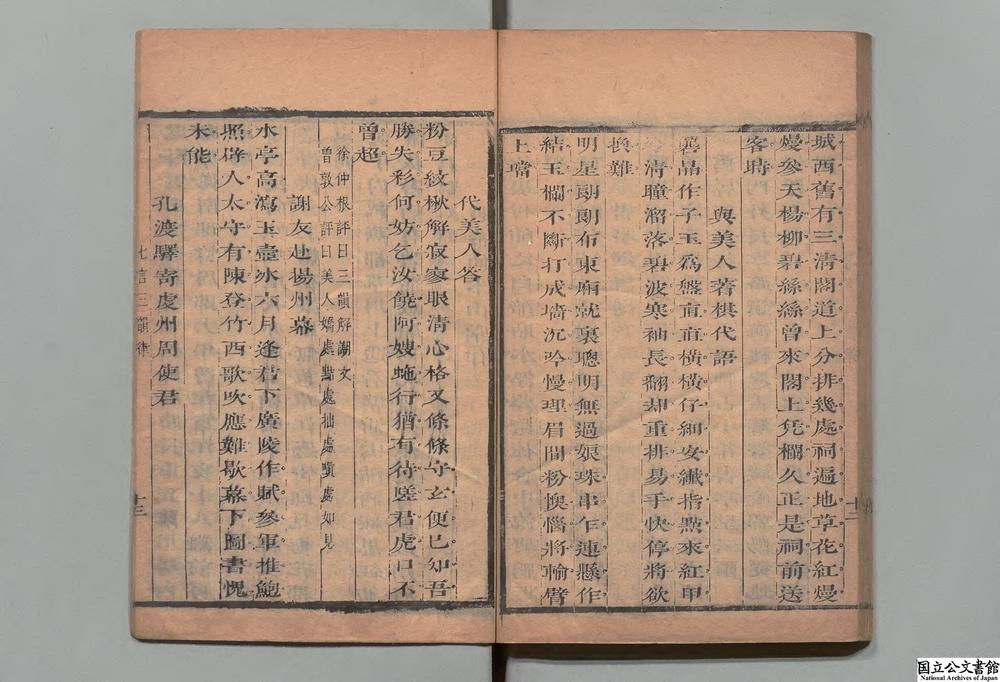 城西舊有三清閣道上分排幾處祠遍地草花紅熳
熳參天楊柳碧絲絲曾來閣上凭欄久正是祠前送
客時
與美人著棋代語
晶作子玉為盤直直橫橫仔細安纖指點來紅甲
清瞳溜落碧波寒袖長翻却重排易手快停將欲
換難
明星朗朗布東廂就裏聰明無過娘珠串乍連懸作
結玉欄不斷打成墻沉吟慢理眉間粉懊惱將輸臂
上璫
十二
代美人答
粉豆紋楸解寂寥眼清心格又條條守玄便已知吾
勝失彩何妨乞汝饒阿嫂虵行猶有待嗟君虎口不
曾超
徐仲根評曰三韻解謿文
曾敦公評曰美人嬌處點處拙處嗔處如見
謝友赴揚州幕
水亭高瀉玉壺冰六月逢君下廣陵作賦參軍推鮑
照辟人太守有陳登竹西歌吹應難歇幕下圖書愧
未能
孔渡驛寄虔州周使君
七言三韻律
十三
国立公文書館
National Archives of Japan